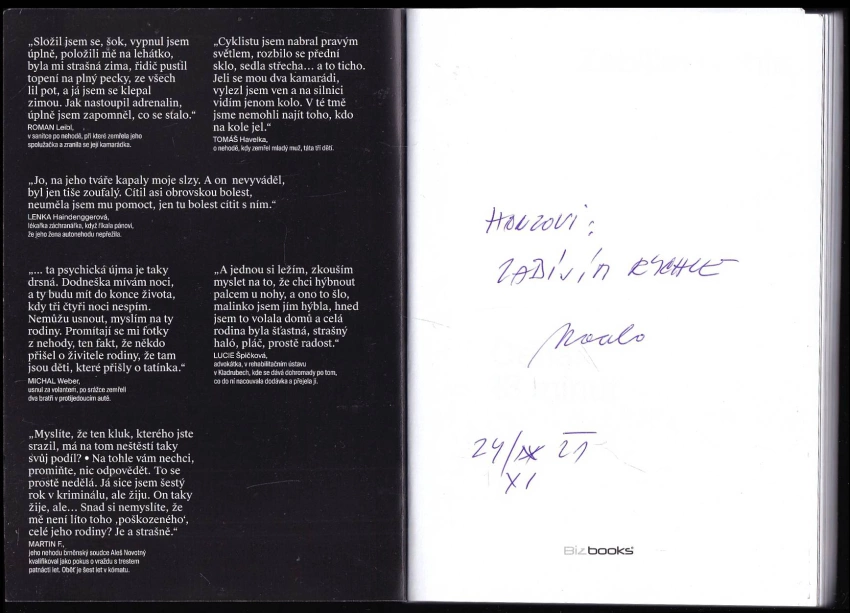 „Složil jsem se, šok, vypnul jsem
úplně, položili mě na lehátko,
byla mi strašná zima, řidič pustil
topení na plný pecky, ze všech
lil pot, a já jsem se klepal
zimou. Jak nastoupil adrenalin,
úplně jsem zapomněl, co se stalo.“
ROMAN Leibl,
v sanitce po nehodě, při které zemřela jeho
spolužačka a zranila se její kamarádka.
„Cyklistu jsem nabral pravým
světlem, rozbilo se přední
sklo, sedla střecha... a to ticho.
Jeli se mou dva kamarádi,
vylezl jsem ven a na silnici
vidím jenom kolo. V té tmě
jsme nemohli najít toho, kdo
na kole jel.“
TOMÁŠ Havelka,
o nehodě, kdy zemřel mladý muž, táta tří dětí.
„Jo, na jeho tváře kapaly moje slzy. A on nevyváděl,
byl jen tiše zoufalý. Cítil asi obrovskou bolest,
neuměla jsem mu pomoct, jen tu bolest cítit s ním.“
LENKA Haindenggerová,
lékařka záchranářka, když říkala pánovi,
že jeho žena autonehodu nepřežila.
„... ta psychická újma je taky
drsná. Dodneška mívám noci,
a ty budu mít do konce života,
kdy tři čtyři noci nespím.
Nemůžu usnout, myslím na ty
rodiny. Promítají se mi fotky
z nehody, ten fakt, že někdo
přišel o živitele rodiny, že tam
jsou děti, které přišly o tatínka.“
MICHAL Weber,
usnul za volantem, po srážce zemřeli
dva bratři v protijedoucím autě.
„A jednou si ležím, zkouším
myslet na to, že chci hýbnout
palcem u nohy, a ono to šlo,
malinko jsem jím hýbla, hned
jsem to volala domů a celá
rodina byla šťastná, strašný
haló, pláč, prostě radost.“
LUCIE Špičková,
advokátka, v rehabilitačním ústavu
v Kladrubech, kde se dává dohromady po tom,
co do ní nacouvala dodávka a přejela ji.
„Myslíte, že ten kluk, kterého jste
srazil, má na tom neštěstí taky
svůj podíl? • Na tohle vám nechci,
promiňte, nic odpovědět. To se
prostě nedělá. Já sice jsem šestý
rok v kriminálu, ale žiju. On taky
žije, ale... Snad si nemyslíte, že
mě není líto toho ‚poškozeného‘,
celé jeho rodiny? Je a strašně.“
MARTIN F.,
jeho nehodu brněnský soudce Aleš Novotný
kvalifikoval jako pokus o vraždu s trestem
patnácti let. Oběť je šest let v kómatu.
HONZOVI:
ZABÍJÍM RYCHLE
24/IX 21
XI
Bizbooks